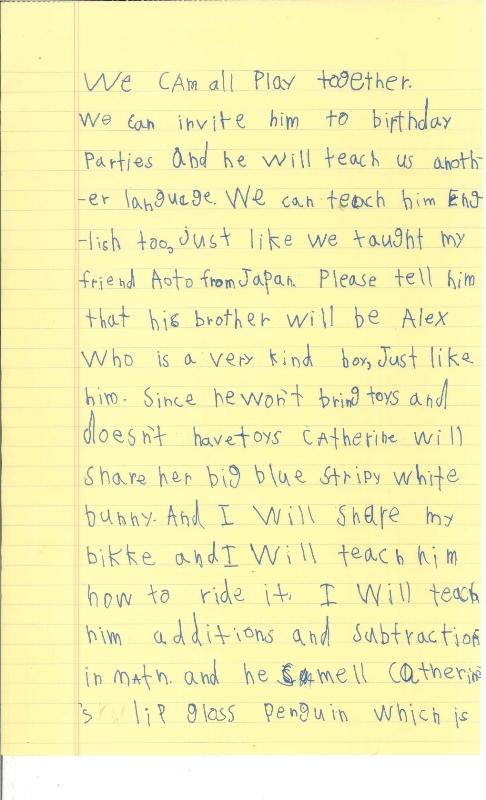 We CAm all Play together.
We can invite him to birthday
Parties and he will teach us anoth-
-er language. We can teach him Eng
-lish too, Just like we taught my
friend Aoto from Japan. Please tell him
that his brother will be Alex
Who is a very kind boy, Just like
him. Since he won't bring toys and
doesn't have toys Catherine will
Share her big blue Stripy white
bunny. And I Will Share my
bikke and I Will teach him
how to ride it. I Will teach
him additions and Subtraction
in math. and he smell Catherine
's lip gloss Penguin which is